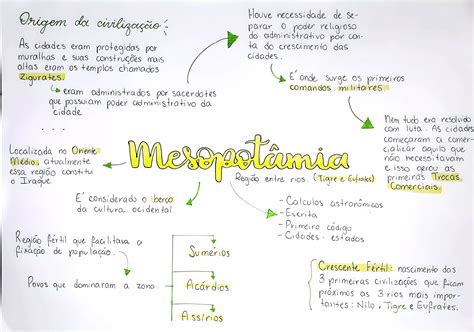 Origem da civilização:
As cidades eram protegidas por
muralhas e suas construções mais
altas eram os templos chamados
Zigurates.
eram administrados por sacerdotes
que possuiam poder administrativo da
cidade
...
Houve necessidade de se-
parar o poder religioso
do administrativo por con-
ta do crescimento das
cidades.
É onde surge os primeiros
comandos militares.
Nem tudo era resolvido
com luta. As cidades
começaram a comer-
cializar aquilo que
não necessitavam
e isso gerou as
primeiras Trocas
Comerciais.
Localizada no Oriente
Médio, atualmente
essa região constitui
o Iraque
Mesopotâmia
Região entre rios. (Tigre e Eufrates)
É considerado o berço
da cultura ocidental
- Calculos astronômicos
- Escrita
- Primeiro código
- Cidades-estados
Região fértil que facilitasa a
fixação de população.
Povos que dominaram a zona
Sumérios
Acárdios
Assírios
Crescente Fértil: nascimento das
3 primeiras civilizações que ficam
próximos as 3 rios mais impor-
tantes: Nilo, Tigre e Eufrates.